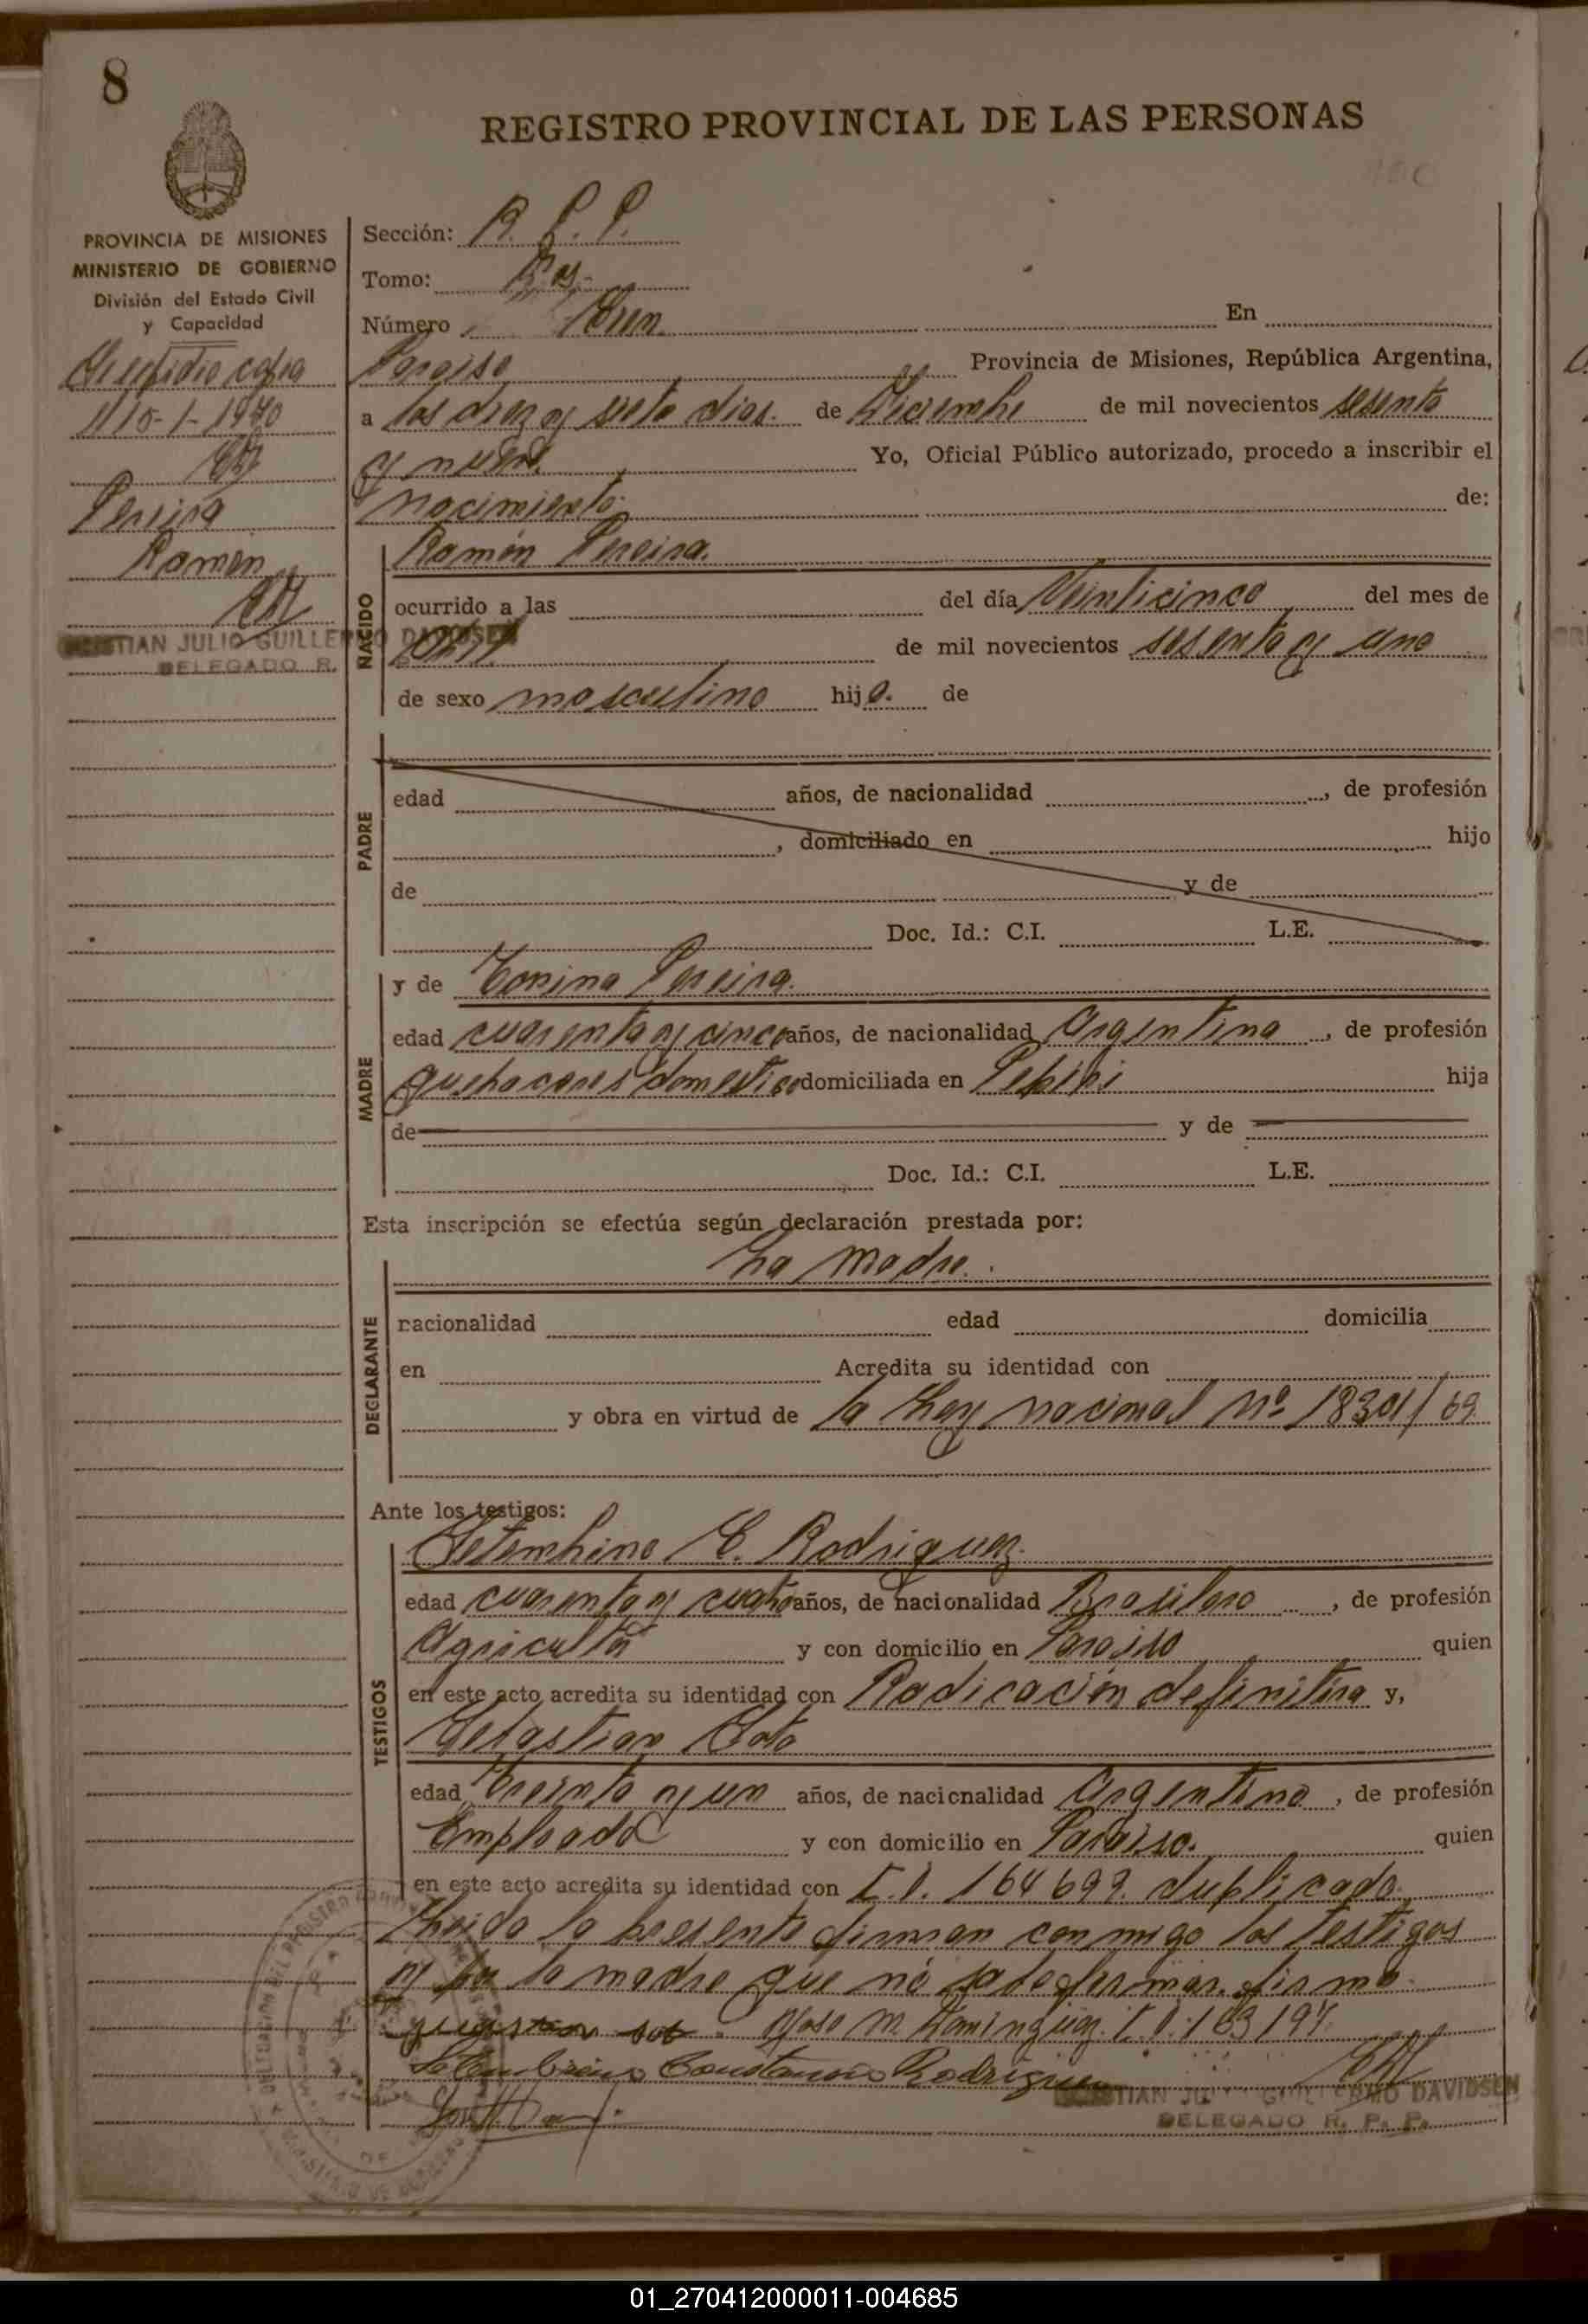 8
REGISTRO PROVINCIAL DE LAS PERSONAS
PROVINCIA DE MISIONES
MINISTERIO DE GOBIERNO
División del Estado Civil
y Capacidad
Sección: R. P. P.
Tomo:
Número
En
Paraiso Provincia de Misiones, República Argentina,
copia
15-1-1970
a los diez y siete dias de Diciembre de mil novecientos sesenta
y nueve Yo, Oficial Público autorizado, procedo a inscribir el
Pereira
nacimiento de:
Ramon
NACIDO
Ramón Pereira.
ocurrido a las del día Veinticinco del mes de
JULIO GUILLERMO DAVIDSEN
DELEGADO R.
de mil novecientos sesenta y uno
de sexo masculino hijo. de
PADRE
edad años, de nacionalidad , de profesión
, domiciliado en hijo
de y de
Doc. Id.: C.I. L.E.
MADRE
y de Pereira.
edad cuarenta y cinco años, de nacionalidad Argentina , de profesión
quehaceres domestico domiciliada en hija
de y de
Doc. Id.: C.I. L.E.
Esta inscripción se efectúa según declaración prestada por:
La Madre.
DECLARANTE
nacionalidad edad domicilia
en Acredita su identidad con
y obra en virtud de la Ley nacional nº 18391/69
Ante los testigos:
TESTIGOS
Setembrino C. Rodriguez.
edad cuarenta y cuatro años, de nacionalidad Brasilero , de profesión
Agricultor y con domicilio en Paraiso quien
en este acto acredita su identidad con Radicación definitiva y,
Sebastian
edad treinta y un años, de nacionalidad Argentino , de profesión
Empleado y con domicilio en Paraiso. quien
en este acto acredita su identidad con C.I. 164699. duplicado.
Leida la presente firman conmigo los testigos
y por la madre que no sabe firmar. firma
M. Dominguez. C.I. 183197
Setembrino Constancio Rodriguez
GUILLERMO DAVIDSEN
DELEGADO R. P. P.
01_270412000011-004685